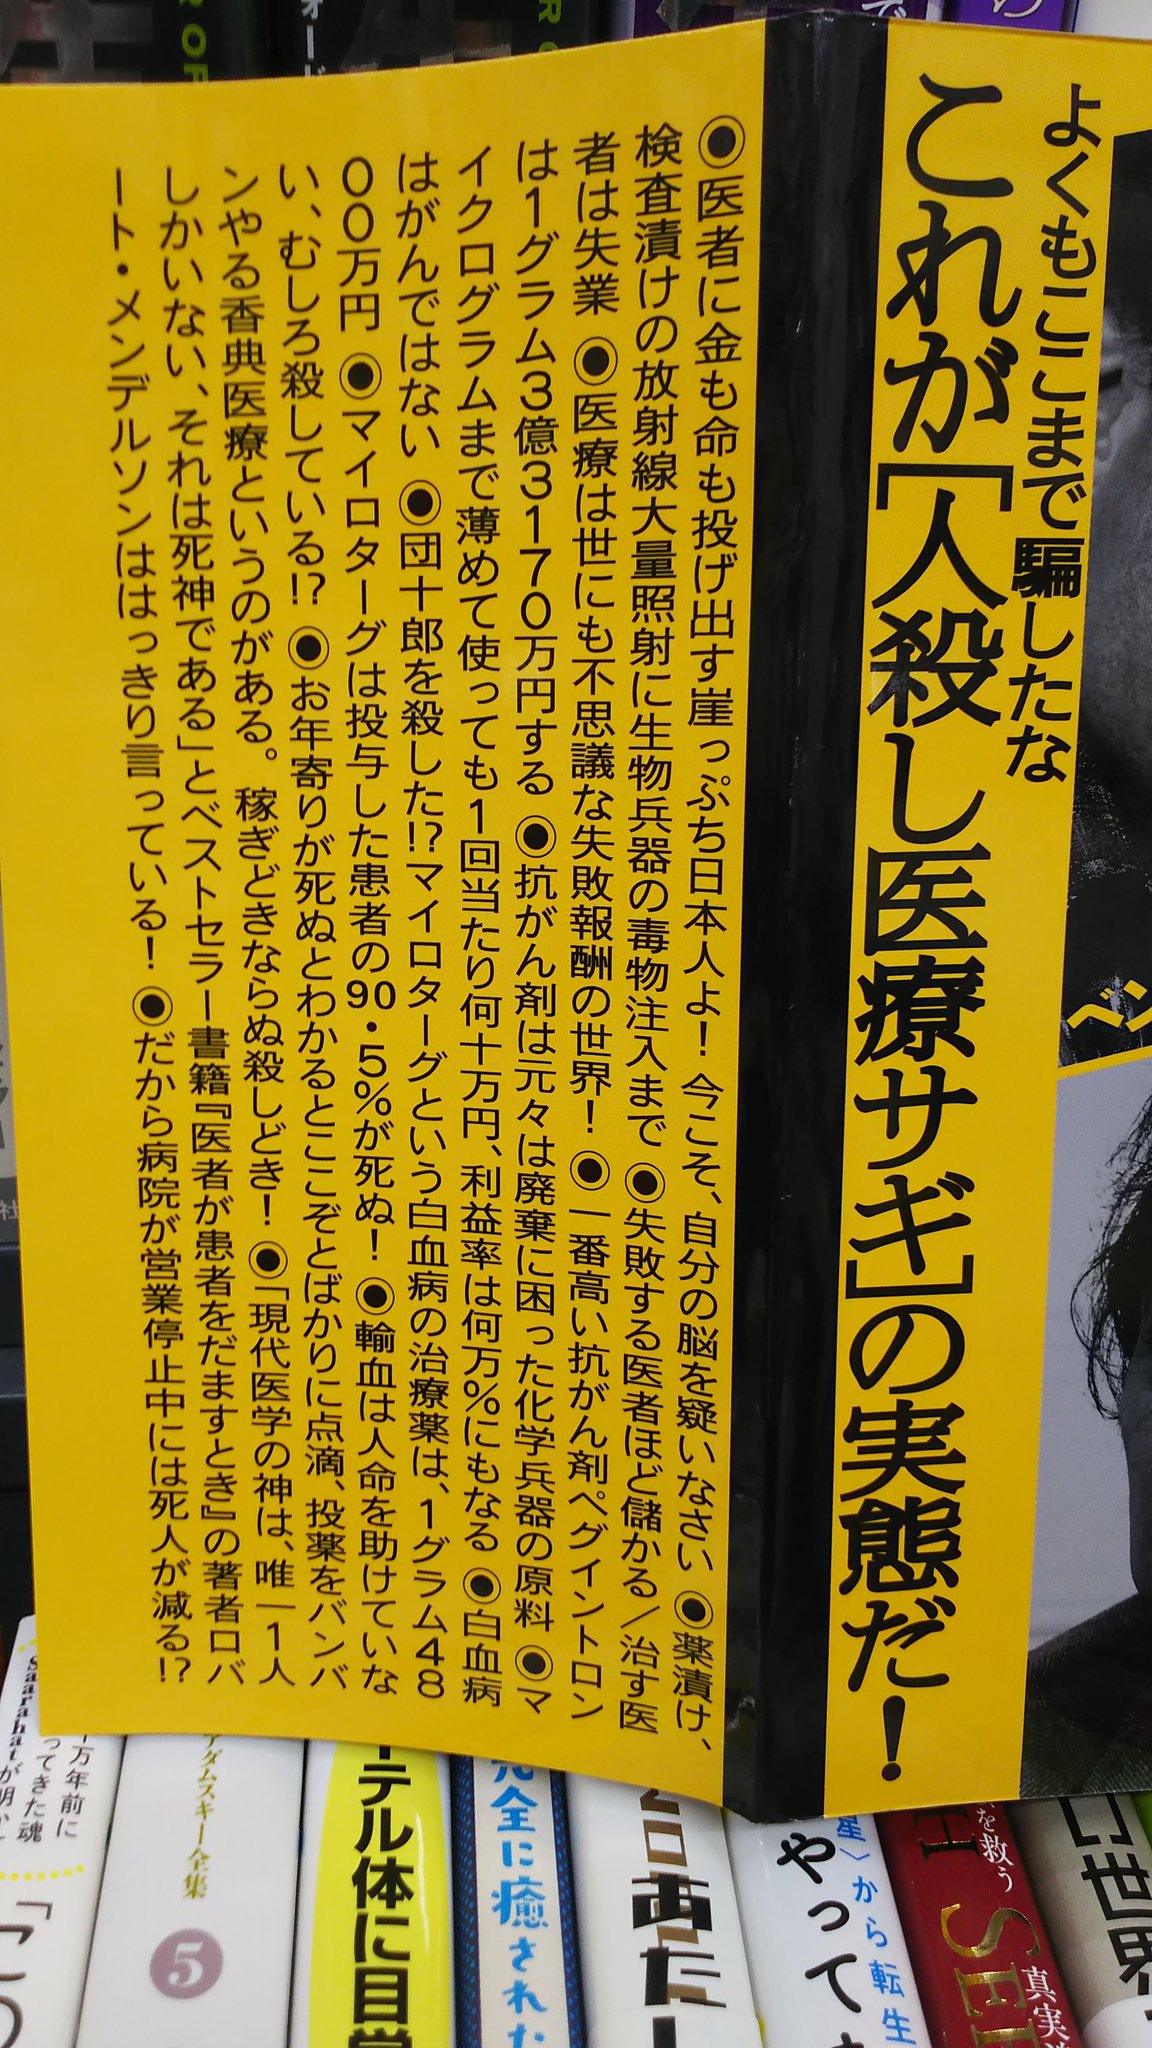 よくもここまで騙したな
これが[人殺し医療サギ]の実態だ!
◉医者に金も命も投げ出す崖っぷち日本人よ! 今こそ、自分の脳を疑いなさい ◉薬漬け、
検査漬けの放射線大量照射に生物兵器の毒物注入まで ◉失敗する医者ほど儲かる/治す医
者は失業 ◉医療は世にも不思議な失敗報酬の世界! ◉一番高い抗がん剤ペグイントロン
は1グラム3億3170万円する ◉抗がん剤は元々は廃棄に困った化学兵器の原料 ◉マ
イクログラムまで薄めて使っても1回当たり何十万円、利益率は何万%にもなる ◉白血病
はがんではない ◉団十郎を殺した!?マイロターグという白血病の治療薬は、1グラム48
00万円 ◉マイロターグは投与した患者の90・5%が死ぬ! ◉輸血は人命を助けていな
い、むしろ殺している!? ◉お年寄りが死ぬとわかるとここぞとばかりに点滴、投薬をバンバ
ンやる香典医療というのがある。稼ぎどきならぬ殺しどき! ◉「現代医学の神は、唯一1人
しかいない、それは死神である」とベストセラー書籍『医者が患者をだますとき』の著者ロバ
ート・メンデルソンははっきり言っている! ◉だから病院が営業停止中には死人が減る!?
ベン
OR
オード
Saarahatが明か
万年前に
ってきた魂
「この
アダムスキー全集
5
ーテル体に目覚
完全に癒され
あた
星〉から転生
やって
を救う
真実
世界